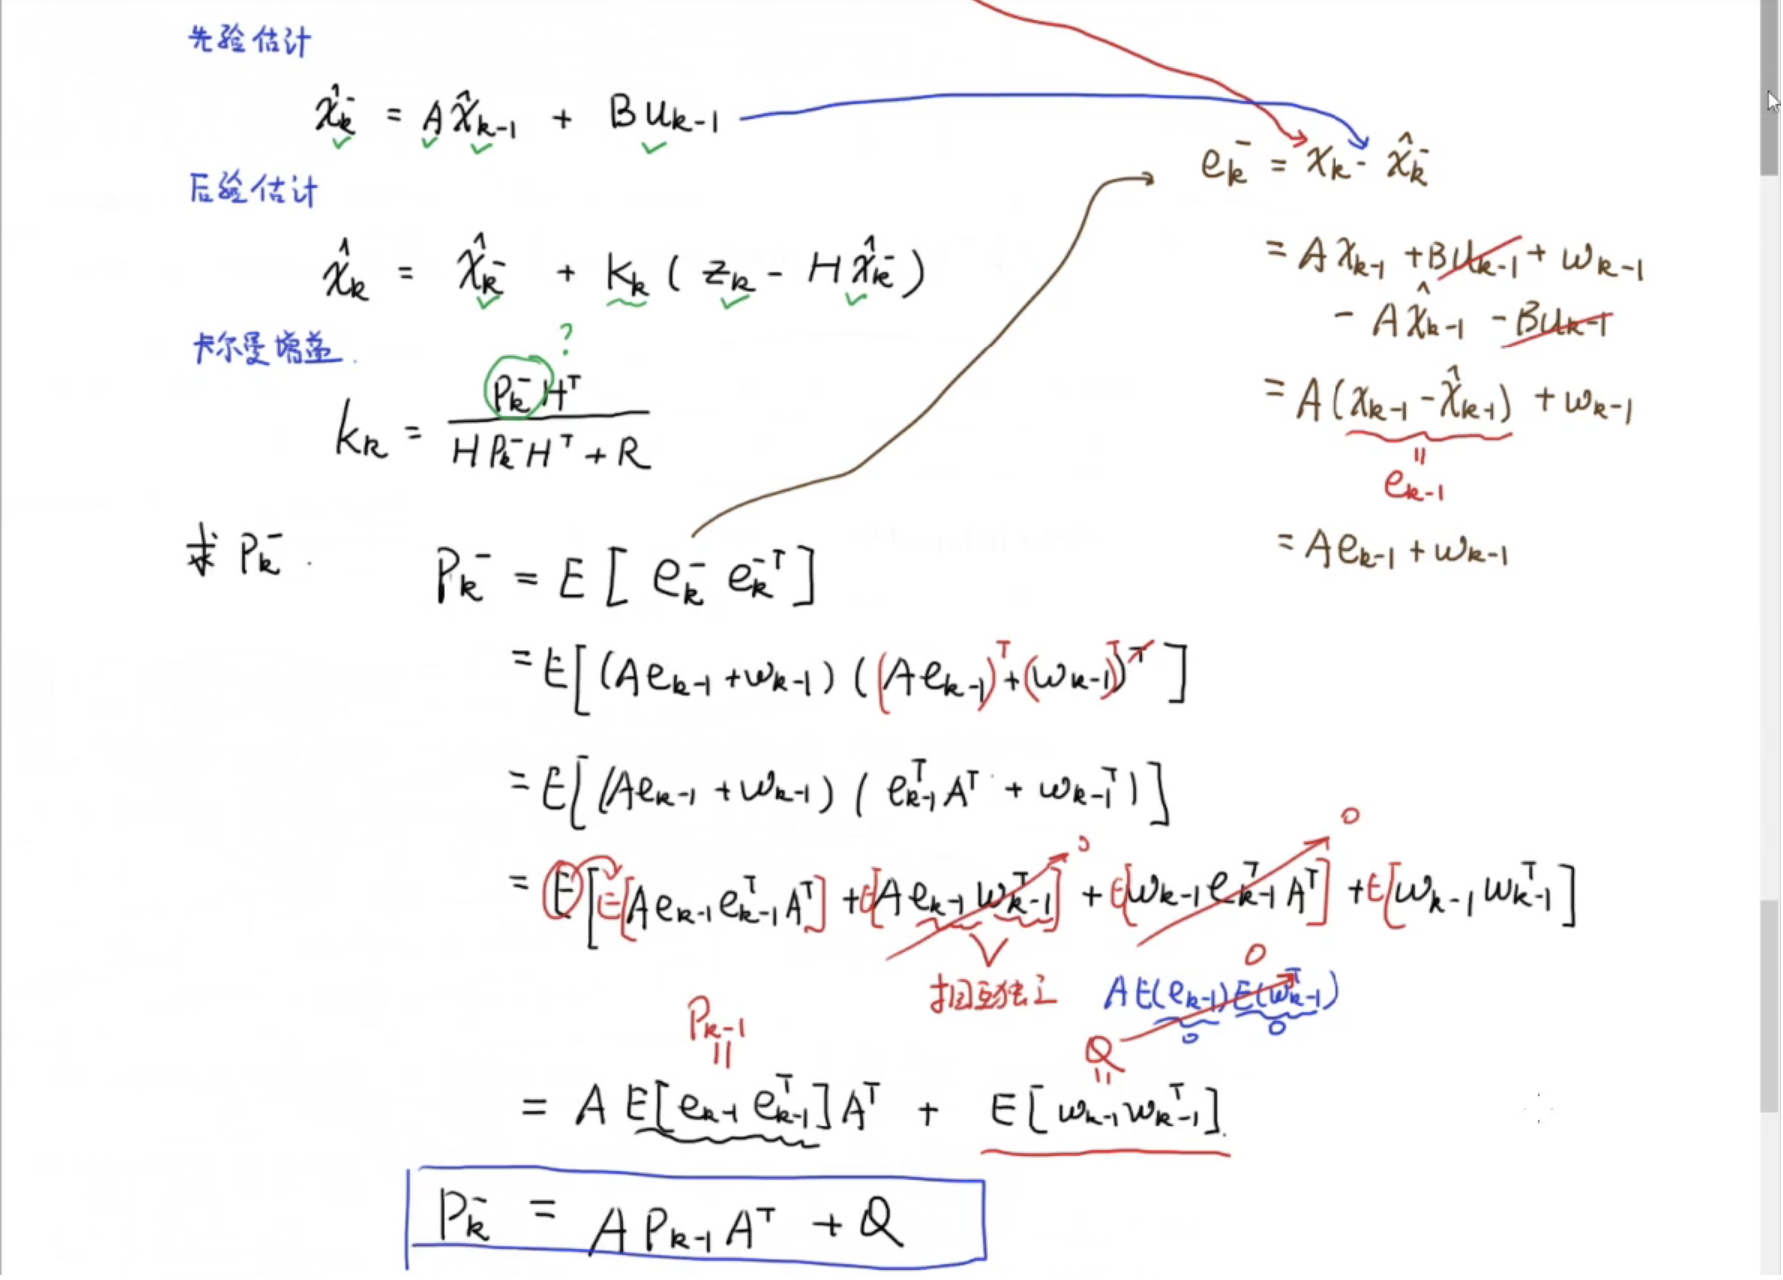 先验估计
x̂ₖ⁻ = A x̂ₖ₋₁ + B uₖ₋₁
后验估计
x̂ₖ = x̂ₖ⁻ + Kₖ ( zₖ - H x̂ₖ⁻ )
卡尔曼增益
?
kₖ = Pₖ⁻Hᵀ / (H Pₖ⁻ Hᵀ + R)
eₖ⁻ = xₖ - x̂ₖ⁻
= A xₖ₋₁ + B uₖ₋₁ + ωₖ₋₁
- A x̂ₖ₋₁ - B uₖ₋₁
= A ( xₖ₋₁ - x̂ₖ₋₁ ) + ωₖ₋₁
= eₖ₋₁
= A eₖ₋₁ + ωₖ₋₁
求 Pₖ⁻ .
Pₖ⁻ = E [ eₖ⁻ eₖ⁻ᵀ ]
= E[ (A eₖ₋₁ + ωₖ₋₁) ( (A eₖ₋₁)ᵀ + (ωₖ₋₁)ᵀ )ᵀ ]
= E[ (A eₖ₋₁ + ωₖ₋₁) ( eₖ₋₁ᵀ Aᵀ + ωₖ₋₁ᵀ ) ]
0 0
= E [ E[A eₖ₋₁ eₖ₋₁ᵀ Aᵀ] + E[A eₖ₋₁ ωₖ₋₁ᵀ] + E[ωₖ₋₁ eₖ₋₁ᵀ Aᵀ] + E[ωₖ₋₁ ωₖ₋₁ᵀ]
相互独立
0
A E(eₖ₋₁) E(ωₖ₋₁ᵀ)
0 0
Pₖ₋₁ =
Q =
= A E[eₖ₋₁ eₖ₋₁ᵀ] Aᵀ + E[ωₖ₋₁ ωₖ₋₁ᵀ]
Pₖ⁻ = A Pₖ₋₁ Aᵀ + Q